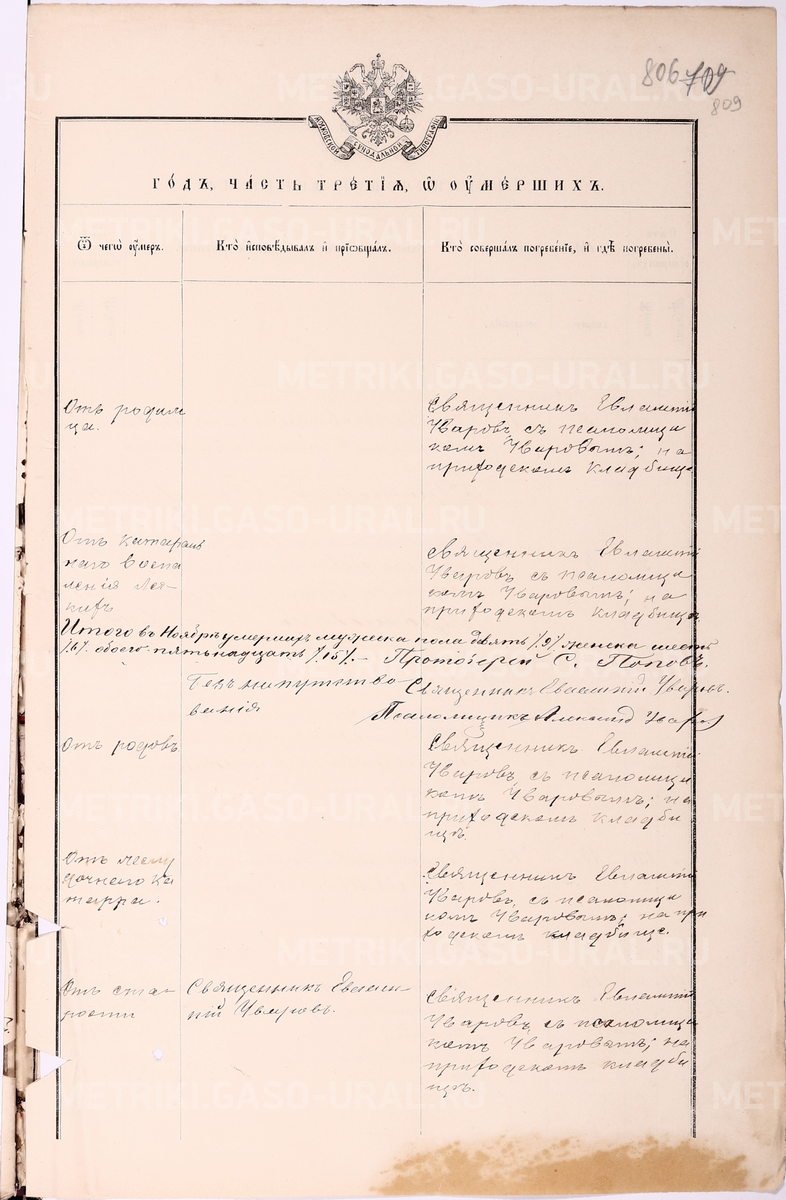 806 709
809
МОСКОВСКОЙ СѴНОДАЛЬНОЙ ТИПОГРАФІИ
ГОДЪ, ЧАСТЬ ТРЕТІЯ, Ѿ ОУМЕРШИХЪ.
Ѿ чегѡ оумеръ.
Кто исповѣдывалъ и пріѡбщалъ.
Кто совершалъ погребеніе, и гдѣ погребены.
Отъ родим
ца.
Священникъ Евлампій
Уваровъ съ псаломщи
комъ Уваровымъ; на
приходскомъ кладбищѣ
Отъ катараль
наго воспа
ленія лег
кихъ
Священникъ Евлампій
Уваровъ съ псаломщи
комъ Уваровымъ; на
приходскомъ кладбищѣ
Итого въ Ноябрѣ умершихъ мужеска пола девять /9/ женска шесть
/6/ обоего пятьнадцать /15/. – Протоіерей С. Поповъ.
Безъ напутство
ванія
Священникъ Евлампій Уваровъ.
Псаломщикъ Уваров
отъ родовъ
Священникъ Евлампій
Уваровъ съ псаломщи
комъ Уваровымъ; на
приходскомъ кладби
щѣ.
Отъ желу
дочнаго ка
тарра.
Священникъ Евлампій
Уваровъ съ псаломщи
комъ Уваровымъ; на при
ходскомъ кладбище.
Отъ ста-
рости
Священникъ Евлам-
пій Уваровъ.
Священникъ Евлампій
Уваровъ съ псаломщи
комъ Уваровымъ; на
приходскомъ кладби
щѣ.
METRIKI.GASO-URAL.RU